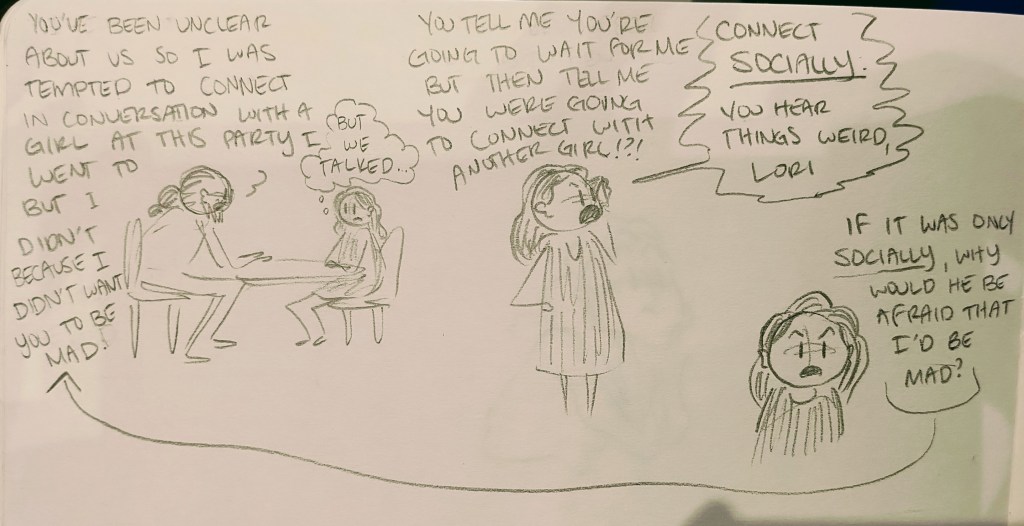 YOU'VE BEEN UNCLEAR
ABOUT US SO I WAS
TEMPTED TO CONNECT
IN CONVERSATION WITH A
GIRL AT THIS PARTY I
WENT TO
BUT I
DIDN'T
BECAUSE I
DIDN'T WANT
YOU TO BE
MAD.
BUT
WE
TALKED...
YOU TELL ME YOU'RE
GOING TO WAIT FOR ME
BUT THEN TELL ME
YOU WERE GOING
TO CONNECT WITH
ANOTHER GIRL!?!
CONNECT
SOCIALLY.
YOU HEAR
THINGS WEIRD,
LORI
IF IT WAS ONLY
SOCIALLY, WHY
WOULD HE BE
AFRAID THAT
I'D BE
MAD?